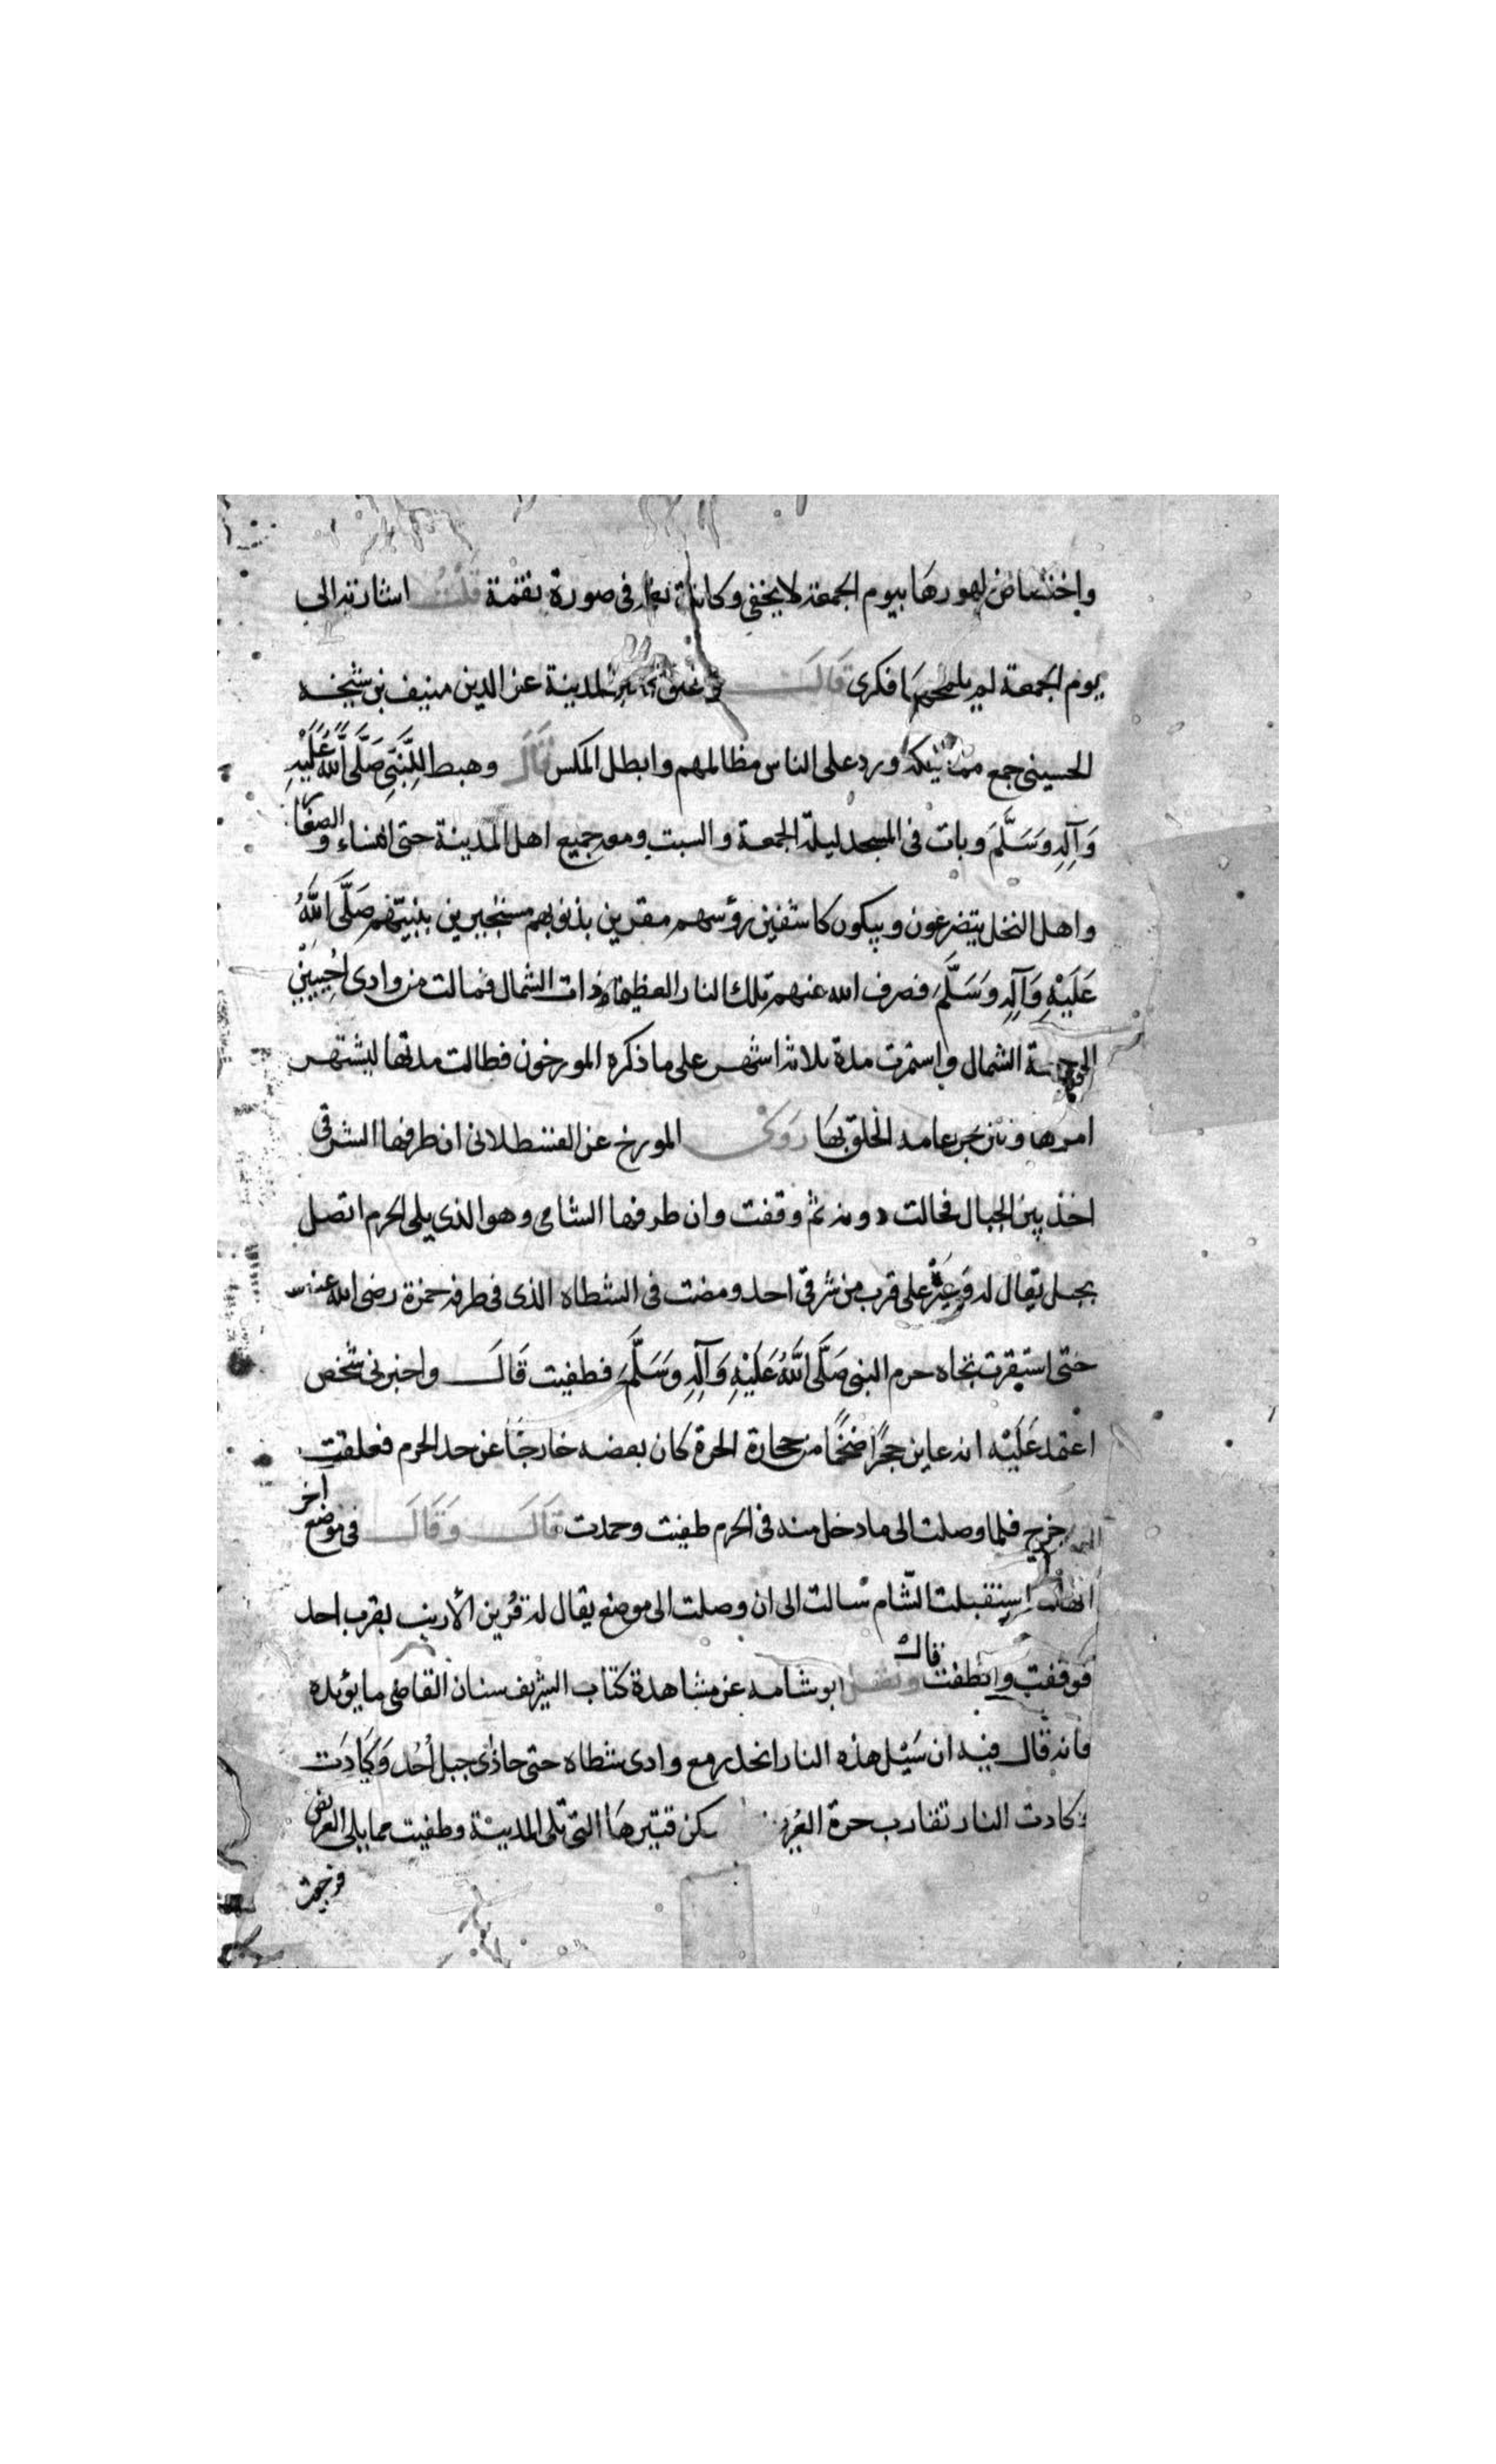 واختصاص ظهورها بيوم الجمعة لا يخفى وكانت نعمة في صورة نقمة قلت اشارته الى
يوم الجمعة لم يلمحها فكرى قال المدينة عز الدين منيف بن شيخه
الحسيني جميع مماليكه ورد على الناس مظالمهم وابطل المكس قال وهبط للنبي صَلَّى اللَّهُ عَلَيْهِ
وَآلِهِ وَسَلَّمَ وبات في المسجد ليلة الجمعة والسبت ومعه جميع اهل المدينة حتى النساء والصغار
واهل النخل يتضرعون ويبكون كاشفين رؤسهم مقرين بذنوبهم مستجيرين بنبيهم صَلَّى اللَّهُ
عَلَيْهِ وَآلِهِ وَسَلَّمَ فصرف الله عنهم تلك النار العظيمة ذات الشمال فمالت من وادى احيليين
الى جهة الشمال واستمرت مدة ثلاثة اشهر على ما ذكره المورخون فطالت مدتها ليشتهر
امرها وينزجر عامة الخلق بها وحكى المورخ عن القسطلاني ان طرفها الشرقي
اخذ بين الجبال فحالت دونه ثم وقفت وان طرفها الشامى وهو الذى يلى الحرم اتصل
بجبل يقال له وَعِيْر على قرب من شرقي احد ومضت في الشطاه الذى في طرفه حمزة رضى الله عنه
حتى استقرت تجاه حرم النبي صَلَّى اللَّهُ عَلَيْهِ وَآلِهِ وَسَلَّمَ فطفيت قَالَ واخبرني شخص
اعتمد عَلَيْه انه عاين حجرًا ضخمًا من حجارة الحرة كان بعضه خارجًا عن حد الحرم فعلقت
خرج فلما وصلت الى ما دخل منه في الحرم طفيت وخمدت قَالَ وَقَالَ في موضع اخر
انها استقبلت الشام سالت الى ان وصلت الى موضع يقال له قُرَين الأرنب بقرب احد
فوقفت وانطفت قال ونقل ابو شامه عن مشاهدة كتاب الشريف سنان القاضي ما يؤيده
فانه قال فيه ان سَيْل هذه النار انحدر مع وادى شطاه حتى حاذى جبل أُحُد وَكَادَت
وكادت النار تقارب حرة العُرَيض سكن قتيرها التي تلى المدينة وطفيت مما يلى العريض
فرجعت